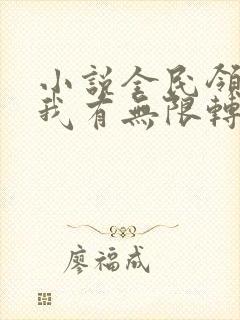 小説全民領
我有無限轉
廖福成